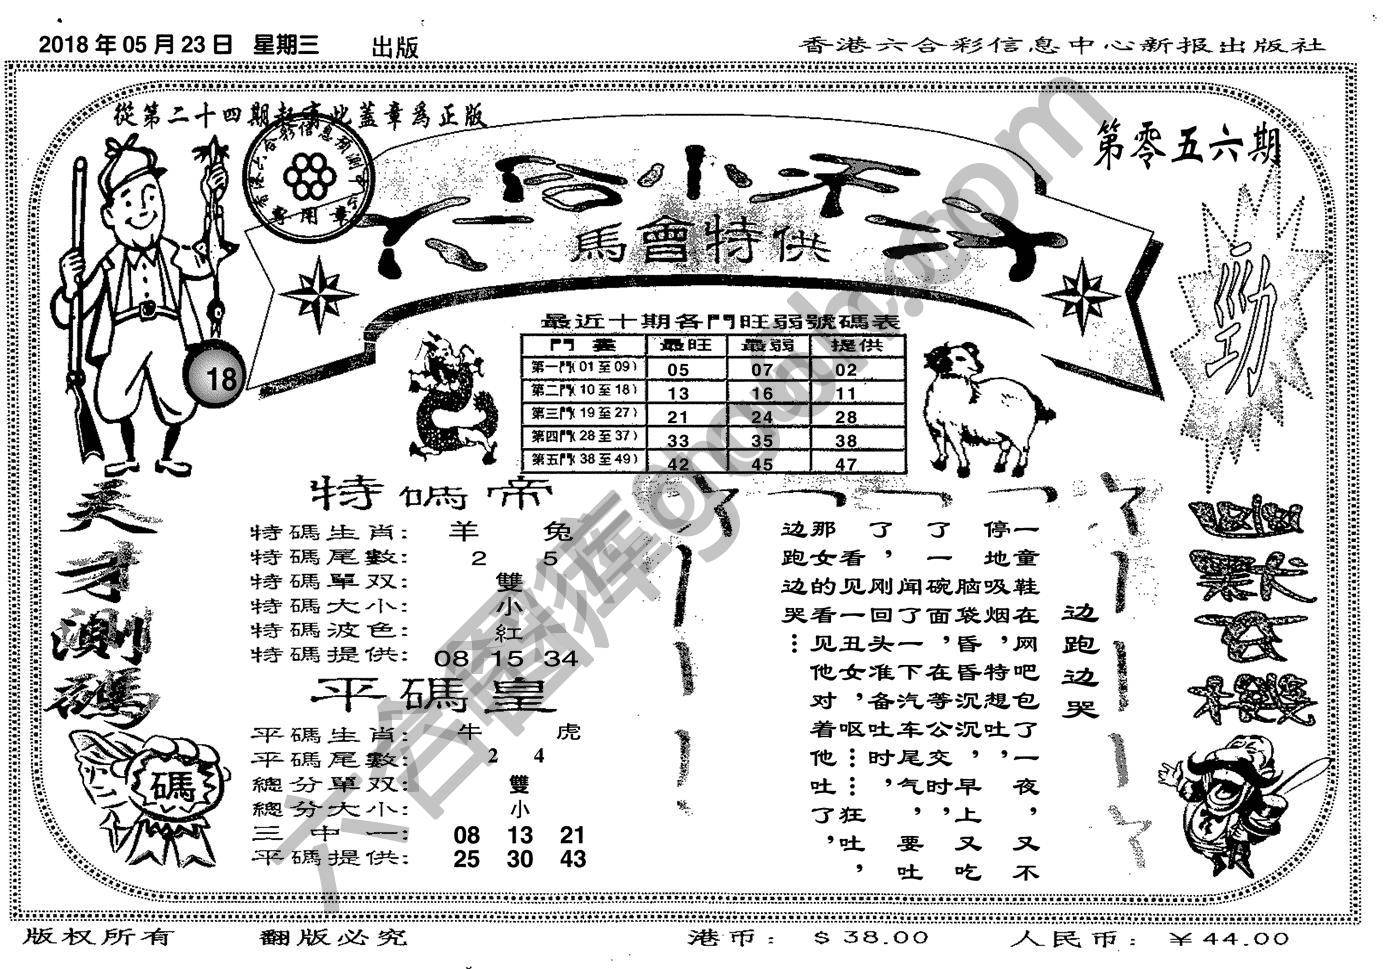 2018 年 05 月 23 日 星期三 出版
香港六合彩信息中心新报出版社
從第二十四期起 蓋章爲正版
第零五六期
專用章
六合小天王
馬會特供
勁
18
最近十期各門旺弱號碼表
門 最旺 最弱 提供
第一門(01至09) 05 07 02
第二門(10至18) 13 16 11
第三門(19至27) 21 24 28
第四門(28至37) 33 35 38
第五門(38至49) 42 45 47
天才測碼
碼
特碼帝
特碼生肖: 羊 兔
特碼尾數: 2 5
特碼單双: 雙
特碼大小: 小
特碼波色: 紅
特碼提供: 08 15 34
平碼皇
平碼生肖: 牛 虎
平碼尾數: 2 4
總分單双: 雙
總分大小: 小
三中一: 08 13 21
平碼提供: 25 30 43
边跑边哭
一童鞋在网吧包了一夜，又不
停地吸烟，特想吐，早上又吃
了一碗面，在等公交时，
了，刚回头准备吐时，
那女看见一丑女，呕……狂吐，
边跑边的看见他对着他吐了，
边跑边哭…
六合图库
版权所有 翻版必究 港币： $38.00 人民币： ￥44.00